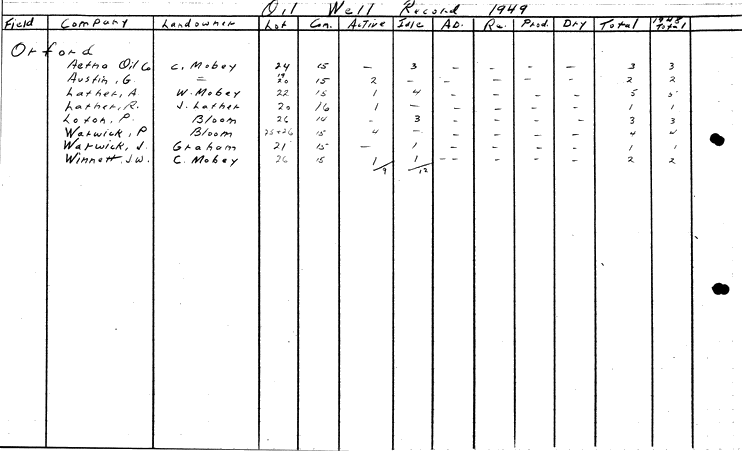 Oil Well Record 1949
Field Company Landowner Lot Con. Active Idle AD. Re. Prod. Dry Total 1948 Total
Orford
Aetna Oil Co C. Mobey 24 15 – 3 – – – – 3 3
Austin, G. = 19 20 15 2 – – – – – 2 2
Lather, A W. Mobey 22 15 1 4 – – – – 5 5
Lather, R. J. Lather 20 16 1 – – – – – 1 1
Loxon, P. Bloom 26 14 – 3 – – – – 3 3
Warwick, P Bloom 25+26 15 4 – – – – – 4 4
Warwick, J. Graham 21 15 – 1 – – – – 1 1
Winnett, J.W. C. Mobey 26 15 1 1 – – – – – 2 2
9 12